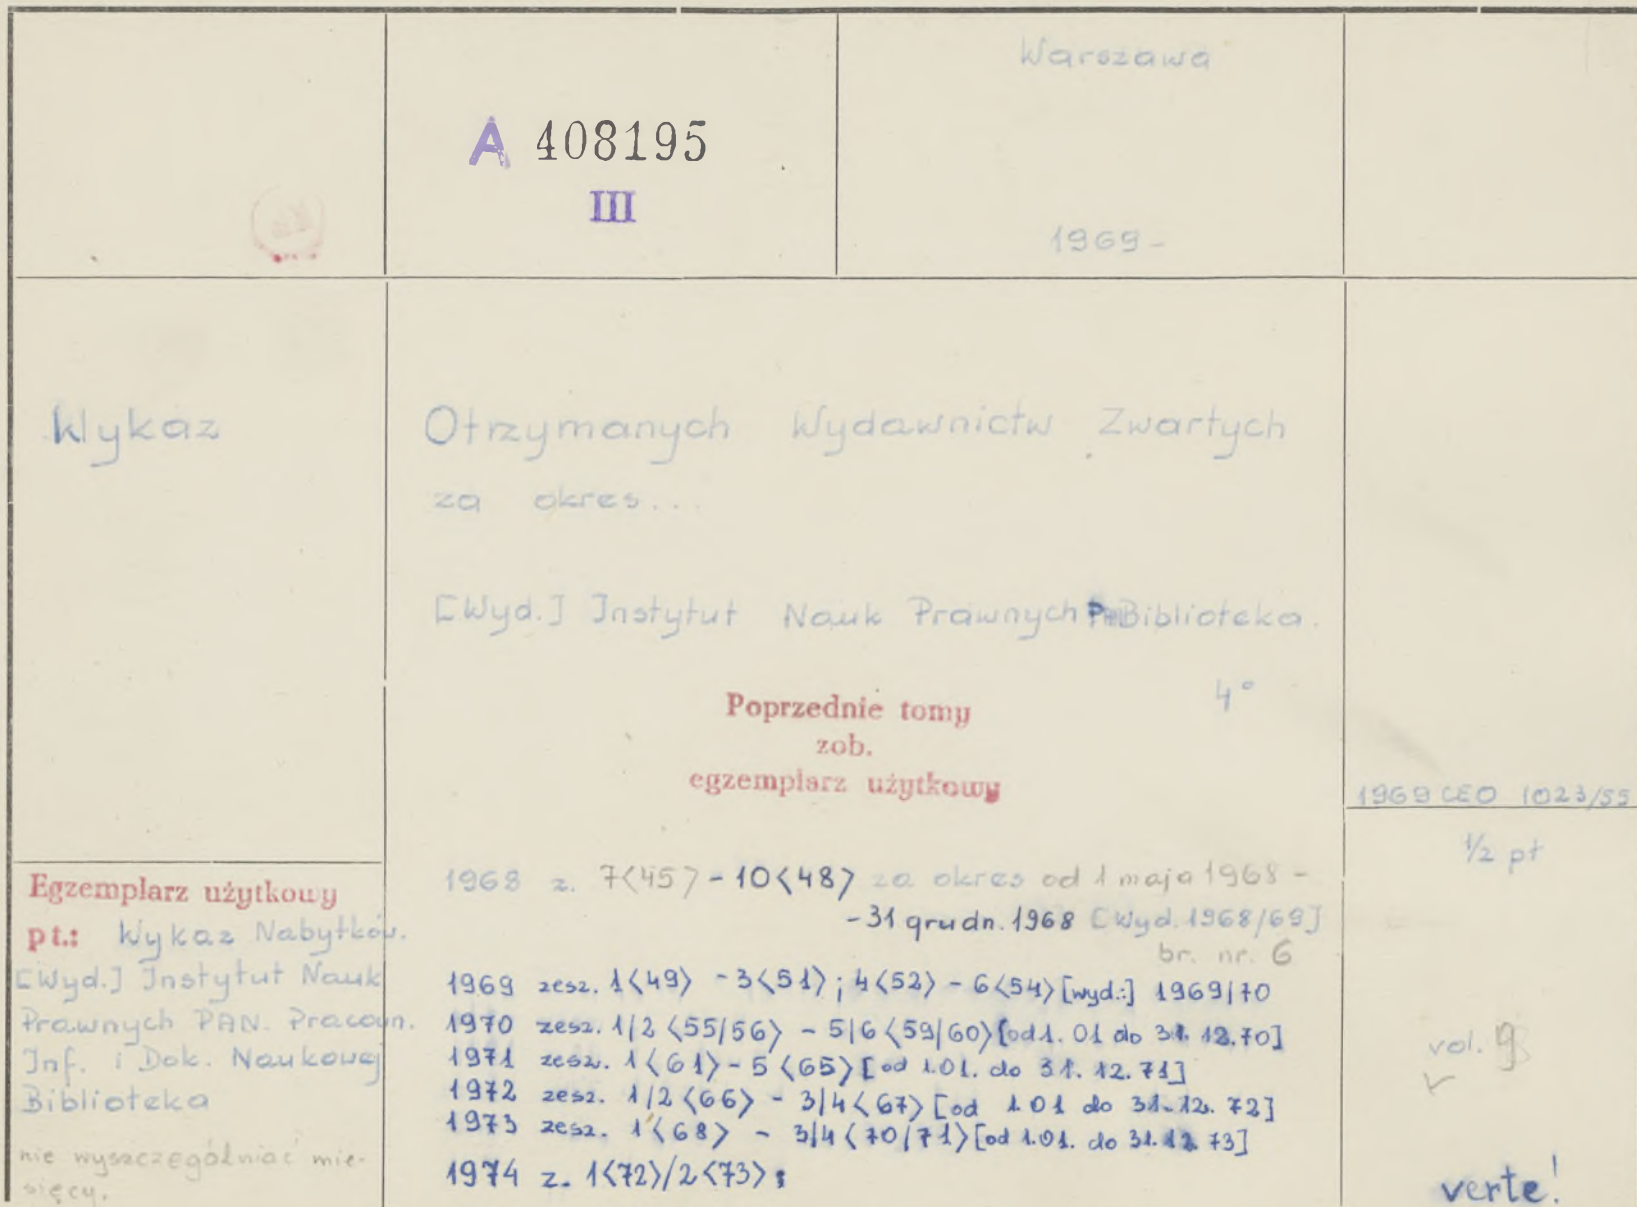 Warszawa
A 408195
III
1969-
Wykaz
Otrzymanych Wydawnictw Zwartych
za okres...
[Wyd.] Instytut Nauk Prawnych PAN Biblioteka.
4°
Poprzednie tomy
zob.
egzemplarz użytkowy
1969 CEO 1023/55
1/2 pt
Egzemplarz użytkowy
pt.: Wykaz Nabytków.
[Wyd.] Instytut Nauk
Prawnych PAN. Pracown.
Inf. i Dok. Naukowej
Biblioteka
nie wyszczególniać mie-
sięcy.
1968 z. 7<45> - 10<48> za okres od 1 maja 1968 -
- 31 grudn. 1968 [Wyd. 1968/69]
br. nr. 6
1969 zesz. 1<49> - 3<51>; 4<52> - 6<54> [wyd.:] 1969/70
1970 zesz. 1/2 <55/56> - 5/6 <59/60> [od 1. 01 do 31. 12.70]
1971 zesz. 1<61> - 5<65> [od 1.01. do 31. 12. 71]
1972 zesz. 1/2 <66> - 3/4 <67> [od 1.01 do 31.12. 72]
1973 zesz. 1<68> - 3/4 <70/71> [od 1.01. do 31.12 73]
1974 z. 1<72>/2<73>;
vol.
verte!